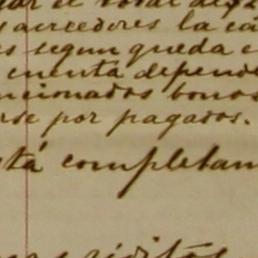 el total de
acreedores la
segun queda
cuenta depend
ncionados bonos
rse por pagados.
stá completam